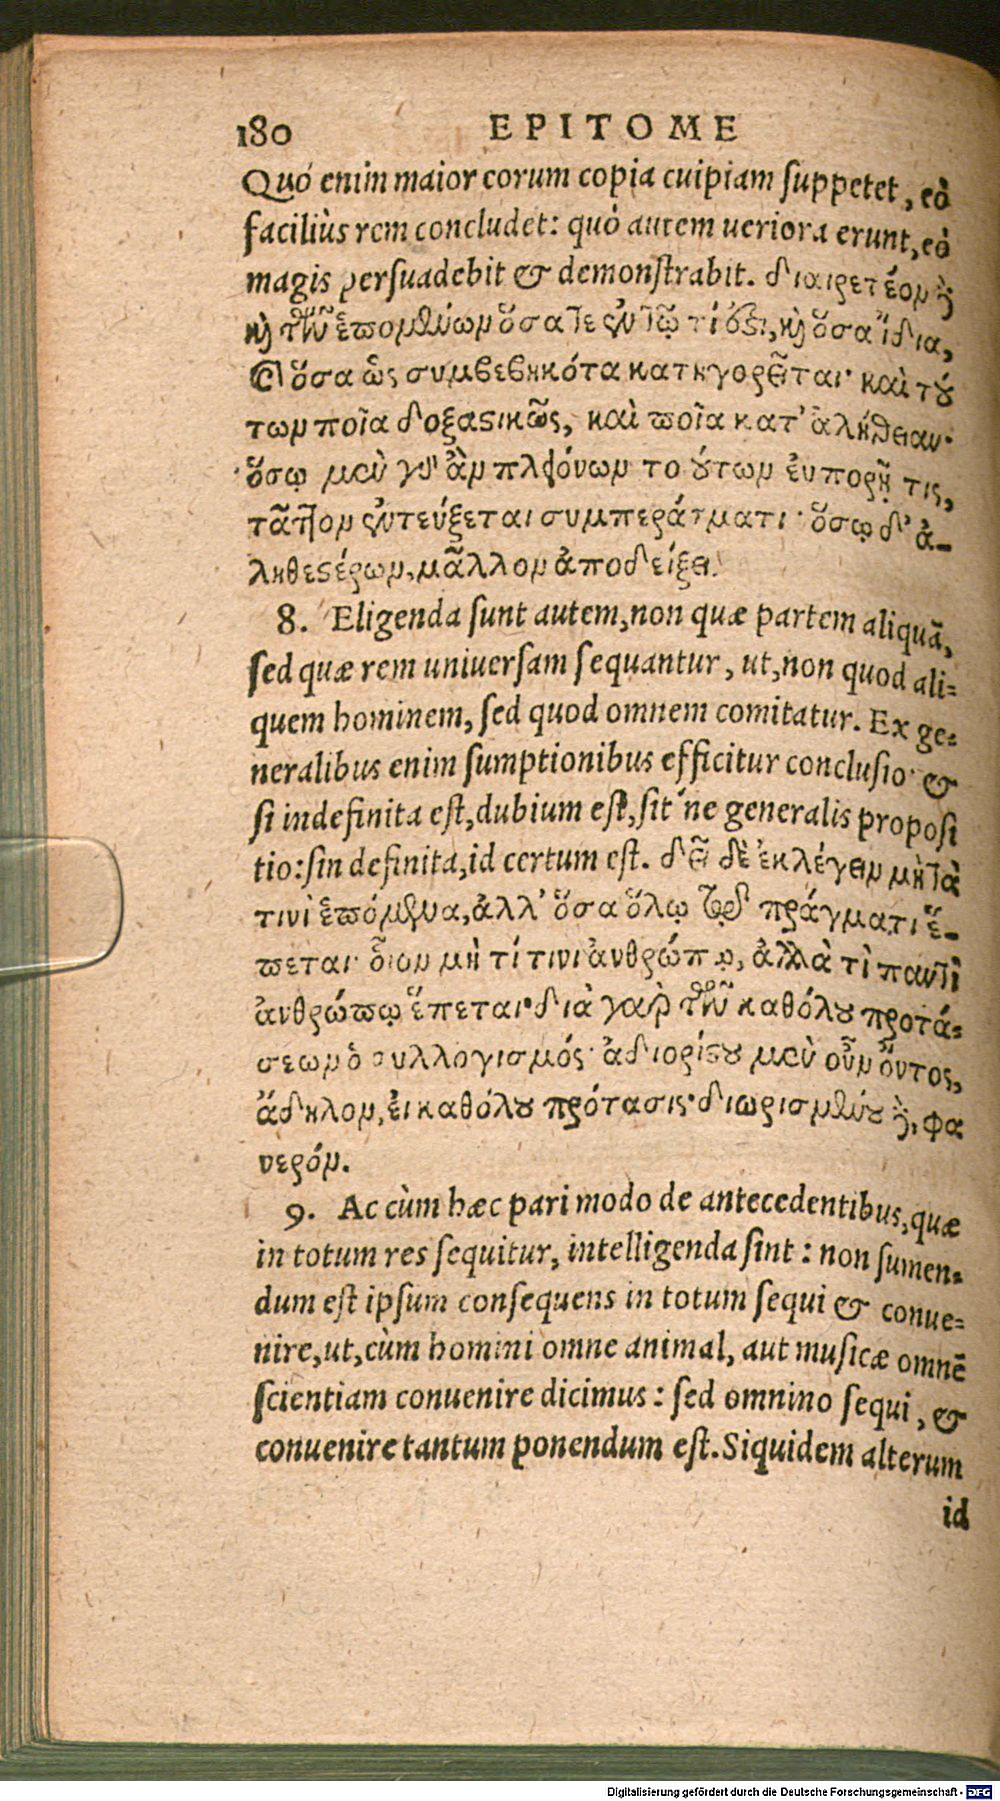 180 EPITOME
Quó enim maior eorum copia cuipiam suppetet, eò
faciliùs rem concludet: quò autem ueriora erunt, eò
magis persuadebit & demonstrabit. διαιρετέον δὲ
καὶ τῶν ἑπομένων ὅσα τε ἐν τῷ τί ἐστι, καὶ ὅσα ἴδια,
καὶ ὅσα ὡς συμβεβηκότα κατηγορεῖται· καὶ τού
των ποῖα δοξαστικῶς, καὶ ποῖα κατ' ἀλήθειαν·
ὅσῳ μὲν γὰρ ἂν πλειόνων τοούτων ἐυπορῇ τις,
τᾶττον ἐντεύξεται συμπεράσματι· ὅσῳ δ' ἀ-
ληθεστέρων, μᾶλλον ἀποδείξει.
8. Eligenda sunt autem, non quæ partem aliquã,
sed quæ rem uniuersam sequantur, ut, non quod ali=
quem hominem, sed quod omnem comitatur. Ex ge=
neralibus enim sumptionibus efficitur conclusio· &
si indefinita est, dubium est, sit'ne generalis proposi
tio: sin definita, id certum est. δεῖ δὲ ἐκλέγειν μὴ τὰ
τινὶ ἑπόμενα, ἀλλ' ὅσα ὅλῳ τῷ πράγματι ἕ-
πεται· οἷον μὴ τί τινι ἀνθρώπῳ, ἀλλὰ τὶ παντὶ
ἀνθρώπῳ ἕπεται· διὰ γαρ τῶν καθόλου προτά=
σεων ὁ συλλογισμός· ἀδιορίστου μὲν οὖν ὄντος,
ἄδηλον, ἐι καθόλου πρότασις· διωρισμένου δὲ, φα
νερόν.
9. Ac cùm hæc pari modo de antecedentibus, quæ
in totum res sequitur, intelligenda sint: non sumen=
dum est ipsum consequens in totum sequi & conue=
nire, ut, cùm homini omne animal, aut musicæ omnẽ
scientiam conuenire dicimus: sed omnino sequi, &
conuenire tantum ponendum est. Siquidem alterum
id
Digitalisierung gefördert durch die Deutsche Forschungsgemeinschaft - DFG